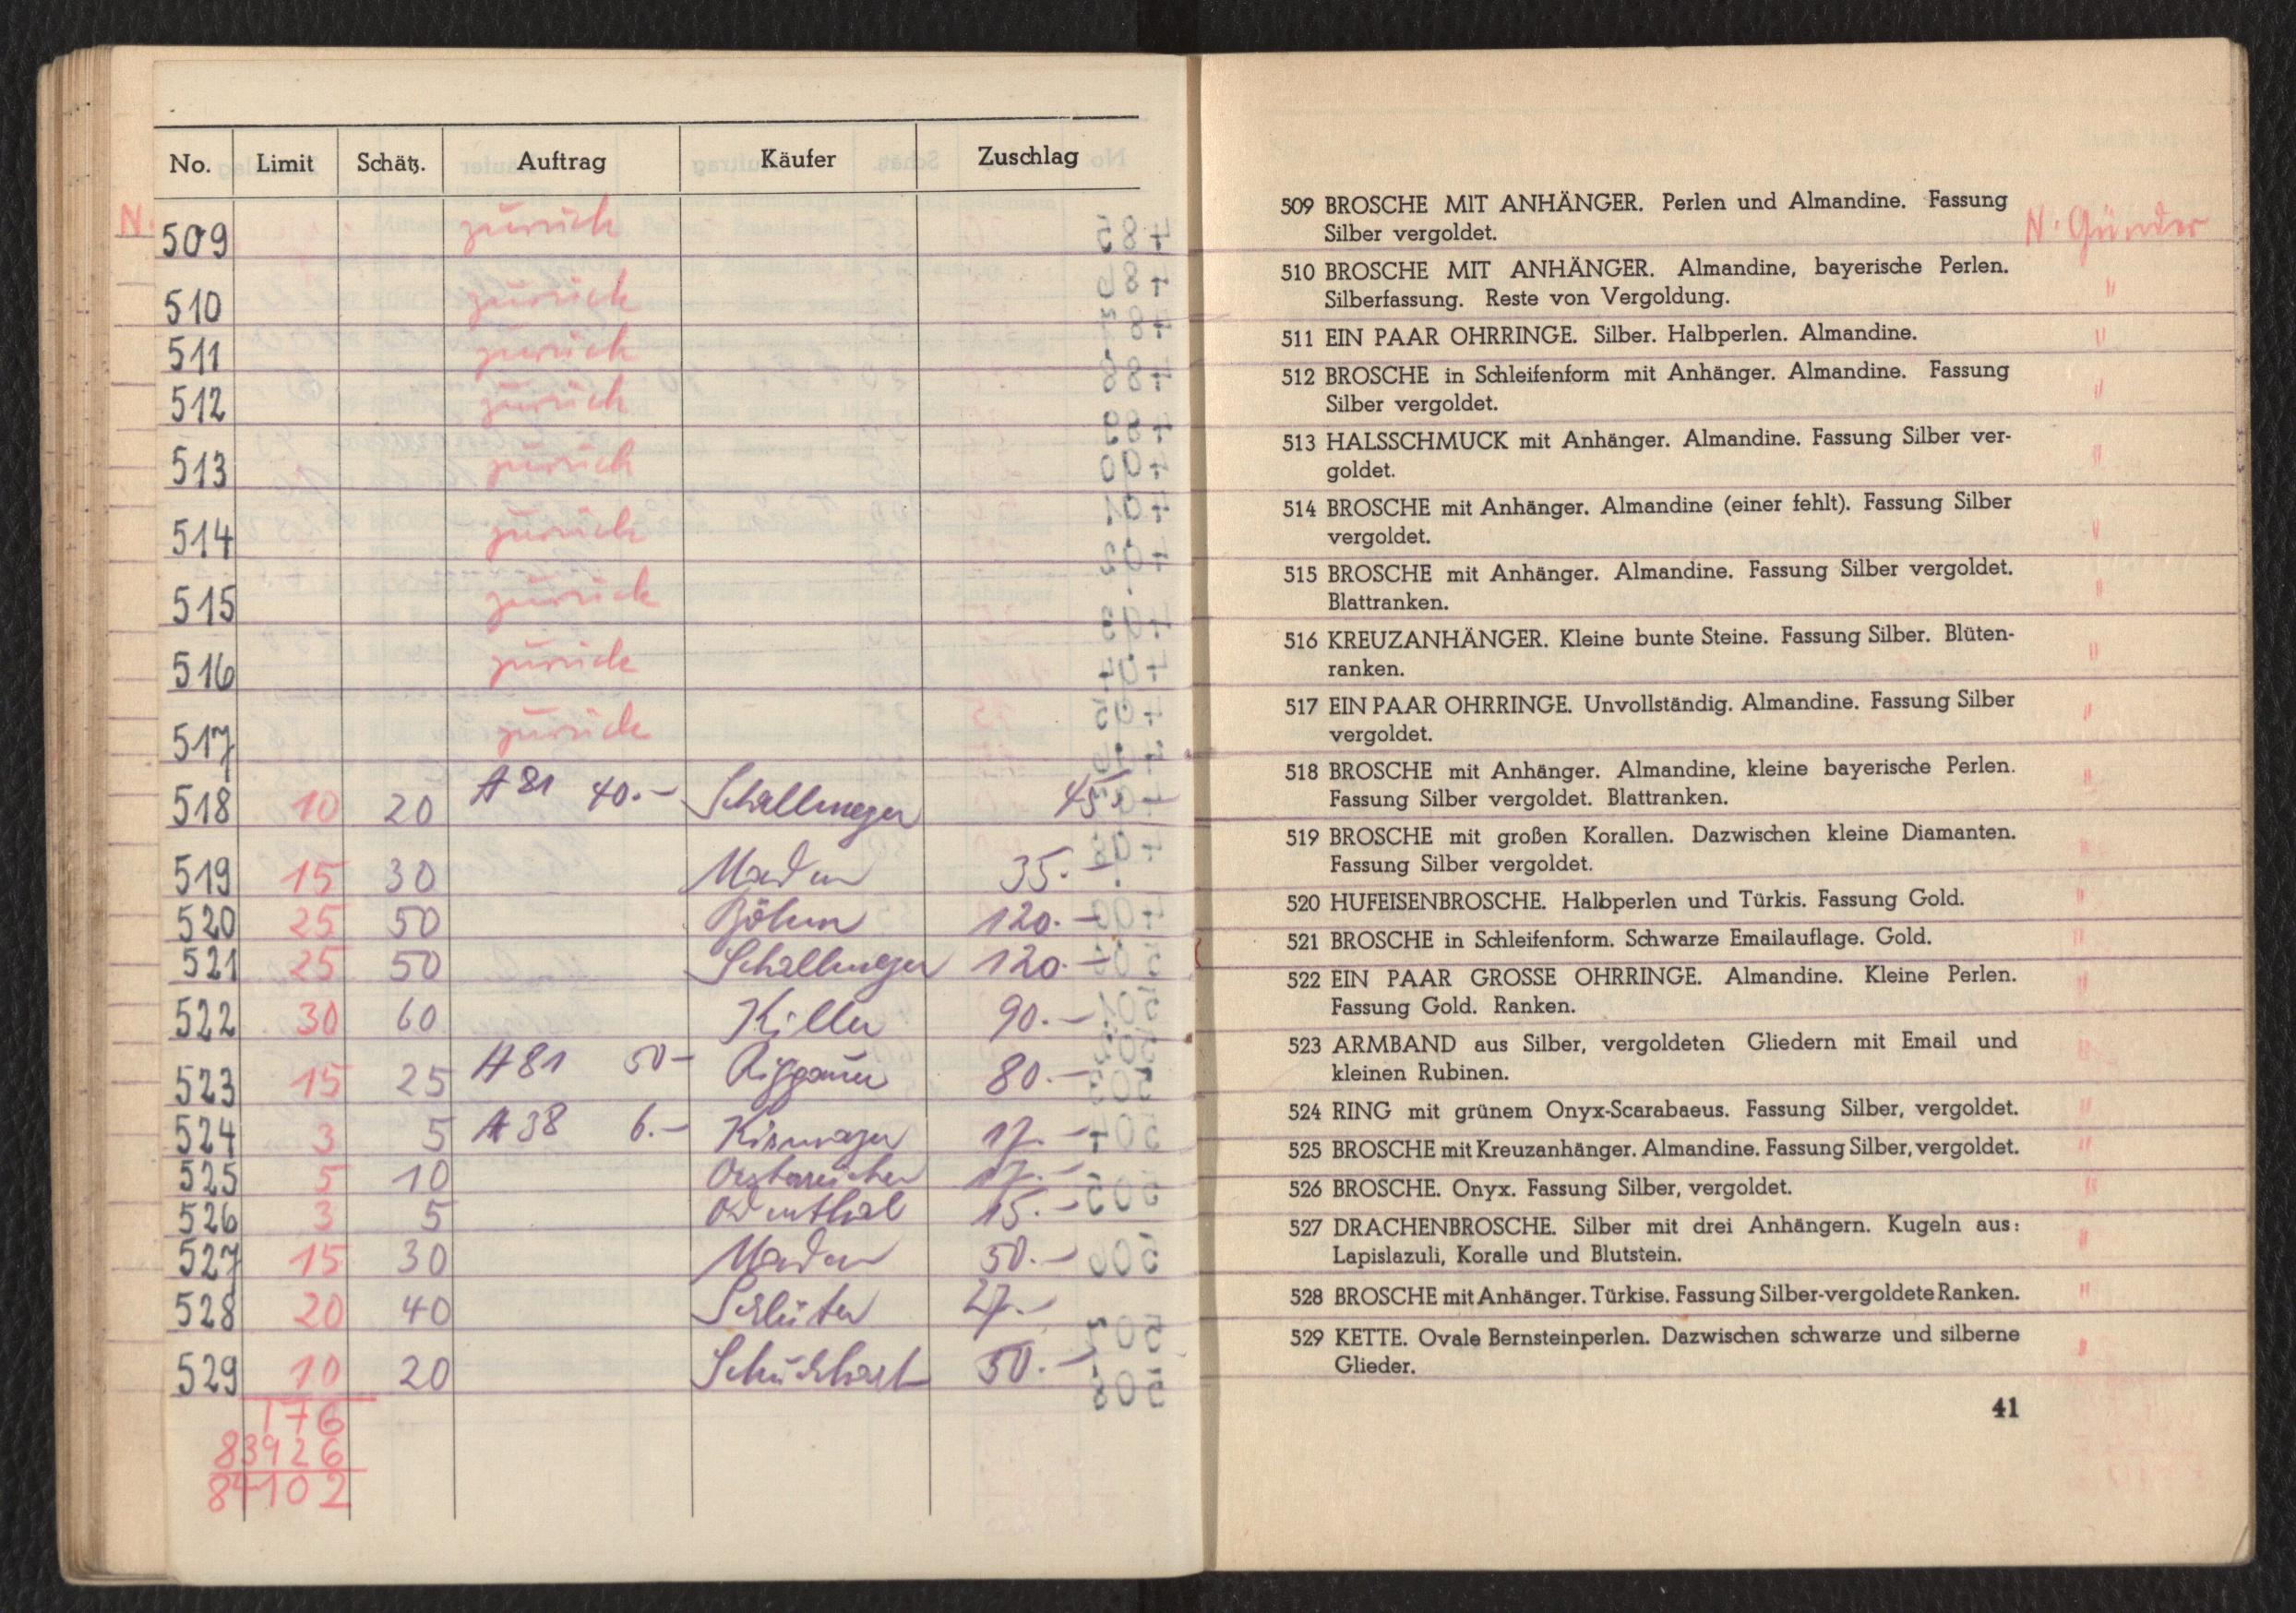 No. Limit Schätz. Auftrag Käufer Zuschlag
N.
509 zurück
510 zurück
511 zurück
512 zurück
513 zurück
514 zurück
515 zurück
516 zurück
517 zurück
518 10 20 A 81 40.- Schallmeyer 45.-
519 15 30 35.-
520 25 50 Böhm 120.-
521 25 50 Schallmeyer 120.-
522 30 60 Killer 90.-
523 15 25 A 81 50- 80.-
524 3 5 A 38 6.- 17.-
525 5 10 Oesterreicher 17.-
526 3 5 Odenthal 15.-
527 15 30 50.-
528 20 40 Schlüter 27.-
529 10 20 50.-
176
83926
84102
509 BROSCHE MIT ANHÄNGER. Perlen und Almandine. Fassung
Silber vergoldet.
N. Günder
510 BROSCHE MIT ANHÄNGER. Almandine, bayerische Perlen.
Silberfassung. Reste von Vergoldung. "
511 EIN PAAR OHRRINGE. Silber. Halbperlen. Almandine. "
512 BROSCHE in Schleifenform mit Anhänger. Almandine. Fassung
Silber vergoldet. "
513 HALSSCHMUCK mit Anhänger. Almandine. Fassung Silber ver-
goldet. "
514 BROSCHE mit Anhänger. Almandine (einer fehlt). Fassung Silber
vergoldet. "
515 BROSCHE mit Anhänger. Almandine. Fassung Silber vergoldet.
Blattranken. "
516 KREUZANHÄNGER. Kleine bunte Steine. Fassung Silber. Blüten-
ranken. "
517 EIN PAAR OHRRINGE. Unvollständig. Almandine. Fassung Silber
vergoldet. "
518 BROSCHE mit Anhänger. Almandine, kleine bayerische Perlen.
Fassung Silber vergoldet. Blattranken. "
519 BROSCHE mit großen Korallen. Dazwischen kleine Diamanten.
Fassung Silber vergoldet. "
520 HUFEISENBROSCHE. Halbperlen und Türkis. Fassung Gold. "
521 BROSCHE in Schleifenform. Schwarze Emailauflage. Gold. "
522 EIN PAAR GROSSE OHRRINGE. Almandine. Kleine Perlen.
Fassung Gold. Ranken. "
523 ARMBAND aus Silber, vergoldeten Gliedern mit Email und
kleinen Rubinen. "
524 RING mit grünem Onyx-Scarabaeus. Fassung Silber, vergoldet. "
525 BROSCHE mit Kreuzanhänger. Almandine. Fassung Silber, vergoldet. "
526 BROSCHE. Onyx. Fassung Silber, vergoldet. "
527 DRACHENBROSCHE. Silber mit drei Anhängern. Kugeln aus:
Lapislazuli, Koralle und Blutstein. "
528 BROSCHE mit Anhänger. Türkise. Fassung Silber-vergoldete Ranken. "
529 KETTE. Ovale Bernsteinperlen. Dazwischen schwarze und silberne
Glieder. "
41